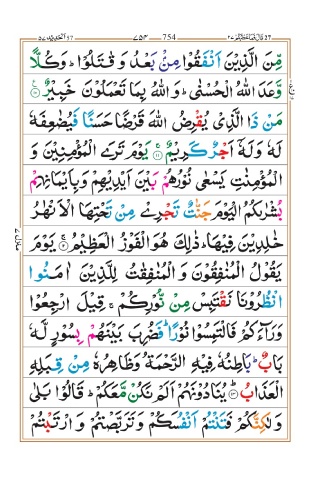 ٧٥۴ 754
مِّنَ الَّذِيۡنَ اَنۡفَقُوۡا مِنۡۢ بَعۡدُ وَ قَاتَلُوۡا‌ؕ وَكُلًّا
وَّعَدَ اللّٰهُ الۡحُسۡنٰى‌ؕ وَ اللّٰهُ بِمَا تَعۡمَلُوۡنَ خَبِيۡرٌ‏
مَنۡ ذَا الَّذِىۡ يُقۡرِضُ اللّٰهَ قَرۡضًا حَسَنًا فَيُضٰعِفَهٗ
لَهٗ وَلَهٗۤ اَجۡرٌ كَرِيۡمٌ ۚ‏ ﴿۱۱﴾ يَوۡمَ تَرَى الۡمُؤۡمِنِيۡنَ وَ
الۡمُؤۡمِنٰتِ يَسۡعٰى نُوۡرُهُمۡ بَيۡنَ اَيۡدِيۡهِمۡ وَبِاَيۡمَانِهِمۡ
بُشۡرٰٮكُمُ الۡيَوۡمَ جَنّٰتٌ تَجۡرِىۡ مِنۡ تَحۡتِهَا الۡاَنۡهٰرُ
خٰلِدِيۡنَ فِيۡهَا‌ؕ ذٰلِكَ هُوَ الۡفَوۡزُ الۡعَظِيۡمُ‌ۚ‏ يَوۡمَ
يَقُوۡلُ الۡمُنٰفِقُوۡنَ وَالۡمُنٰفِقٰتُ لِلَّذِيۡنَ اٰمَنُوا
انْظُرُوۡنَا نَقۡتَبِسۡ مِنۡ نُّوۡرِكُمۡ‌ۚ قِيۡلَ ارۡجِعُوۡا
وَرَآءَكُمۡ فَالۡتَمِسُوۡا نُوۡرًاؕ فَضُرِبَ بَيۡنَهُمۡ بِسُوۡرٍ لَّهٗ
بَابٌؕ بَاطِنُهٗ فِيۡهِ الرَّحۡمَةُ وَظَاهِرُهٗ مِنۡ قِبَلِهِ
الۡعَذَابُؕ‏ ﴿۱۳﴾ يُنَادُوۡنَهُمۡ اَلَمۡ نَكُنۡ مَّعَكُمۡ‌ؕ قَالُوۡا بَلٰى
وَلٰـكِنَّكُمۡ فَتَنۡتُمۡ اَنۡفُسَكُمۡ وَ تَرَبَّصۡتُمۡ وَارۡتَبۡتُمۡ